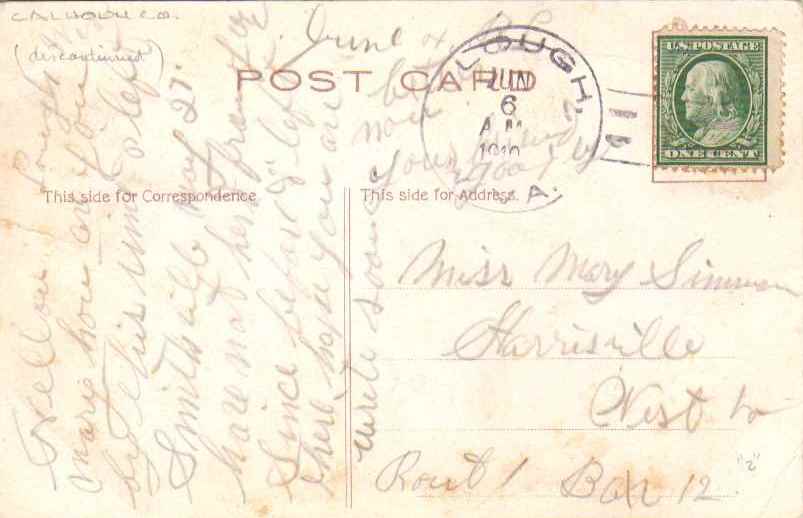 CALHOUN CO.
(discontinued)
POST CARD
U.S. POSTAGE
ONE CENT
LOUGH,
JUN
6
A M
1910
VA.
This side for Correspondence
This side for Address.
June 4
Hellow
mary how are you
by this time I left
Smithville May 27.
have not her from for
Since before I left
there hope you are better
now
write soon
your
Miss Mary Simmon
Harrisville
West Va
Rout 1 Box 12
"2"